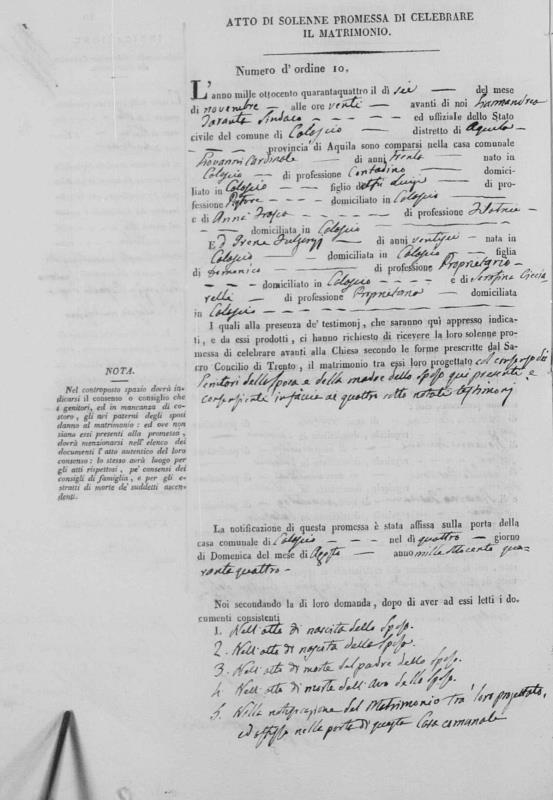 ATTO DI SOLENNE PROMESSA DI CELEBRARE
IL MATRIMONIO.
Numero d'ordine 10.
L'anno mille ottocento quarantaquattro il dì sei — del mese
di novembre — alle ore venti — avanti di noi
Taranta Sindaco — ed uffiziale dello Stato
civile del comune di — distretto di Aquila —
— provincia di Aquila sono comparsi nella casa comunale
Giovanni Cardinale — di anni trenta — nato in
— di professione Contadino — domici-
liato in — figlio del fu Luigi — di pro-
fessione — domiciliato in
e di Anna — di professione Filatrice
— domiciliata in
Ed Irena — di anni ventisei — nata in
— domiciliata in — figlia
di Domenico — di professione Proprietario —
— domiciliato in — e di Serafina Ciccia
rella — di professione Proprietaria — domiciliata
in
I quali alla presenza de' testimonj, che saranno quì appresso indica-
ti, e da essi prodotti, ci hanno richiesto di ricevere la loro solenne pro-
messa di celebrare avanti alla Chiesa secondo le forme prescritte dal Sa-
cro Concilio di Trento, il matrimonio tra essi loro progettato col consenso dei
Genitori della sposa e della madre dello sposo qui presenti, e
in faccia ai quattro sotto notati testimonj
NOTA.
Nel contraposto spazio dovrà in-
dicarsi il consenso o consiglio che
i genitori, ed in mancanza di co-
storo, gli avi paterni degli sposi
danno al matrimonio: ed ove non
siano essi presenti alla promessa,
dovrà menzionarsi nell'elenco dei
documenti l'atto autentico del loro
consenso: lo stesso avrà luogo per
gli atti rispettosi, pe' consensi dei
consigli di famiglia, e per gli e-
stratti di morte de' suddetti ascen-
denti.
La notificazione di questa promessa è stata affissa sulla porta della
casa comunale di — nel dì quattro — giorno
di Domenica del mese di Agosto — anno mille ottocento qua-
ranta quattro —
Noi secondando la di loro domanda, dopo di aver ad essi letti i do-
cumenti consistenti
1. Nell'atto di nascita dello sposo.
2. Nell'atto di nascita della sposa.
3. Nell'atto di morte del padre dello sposo.
4. Nell'atto di morte dell'Avo dello sposo.
5. Nella notificazione del Matrimonio tra loro progettato,
ed affissa nella porta di questa Casa comunale